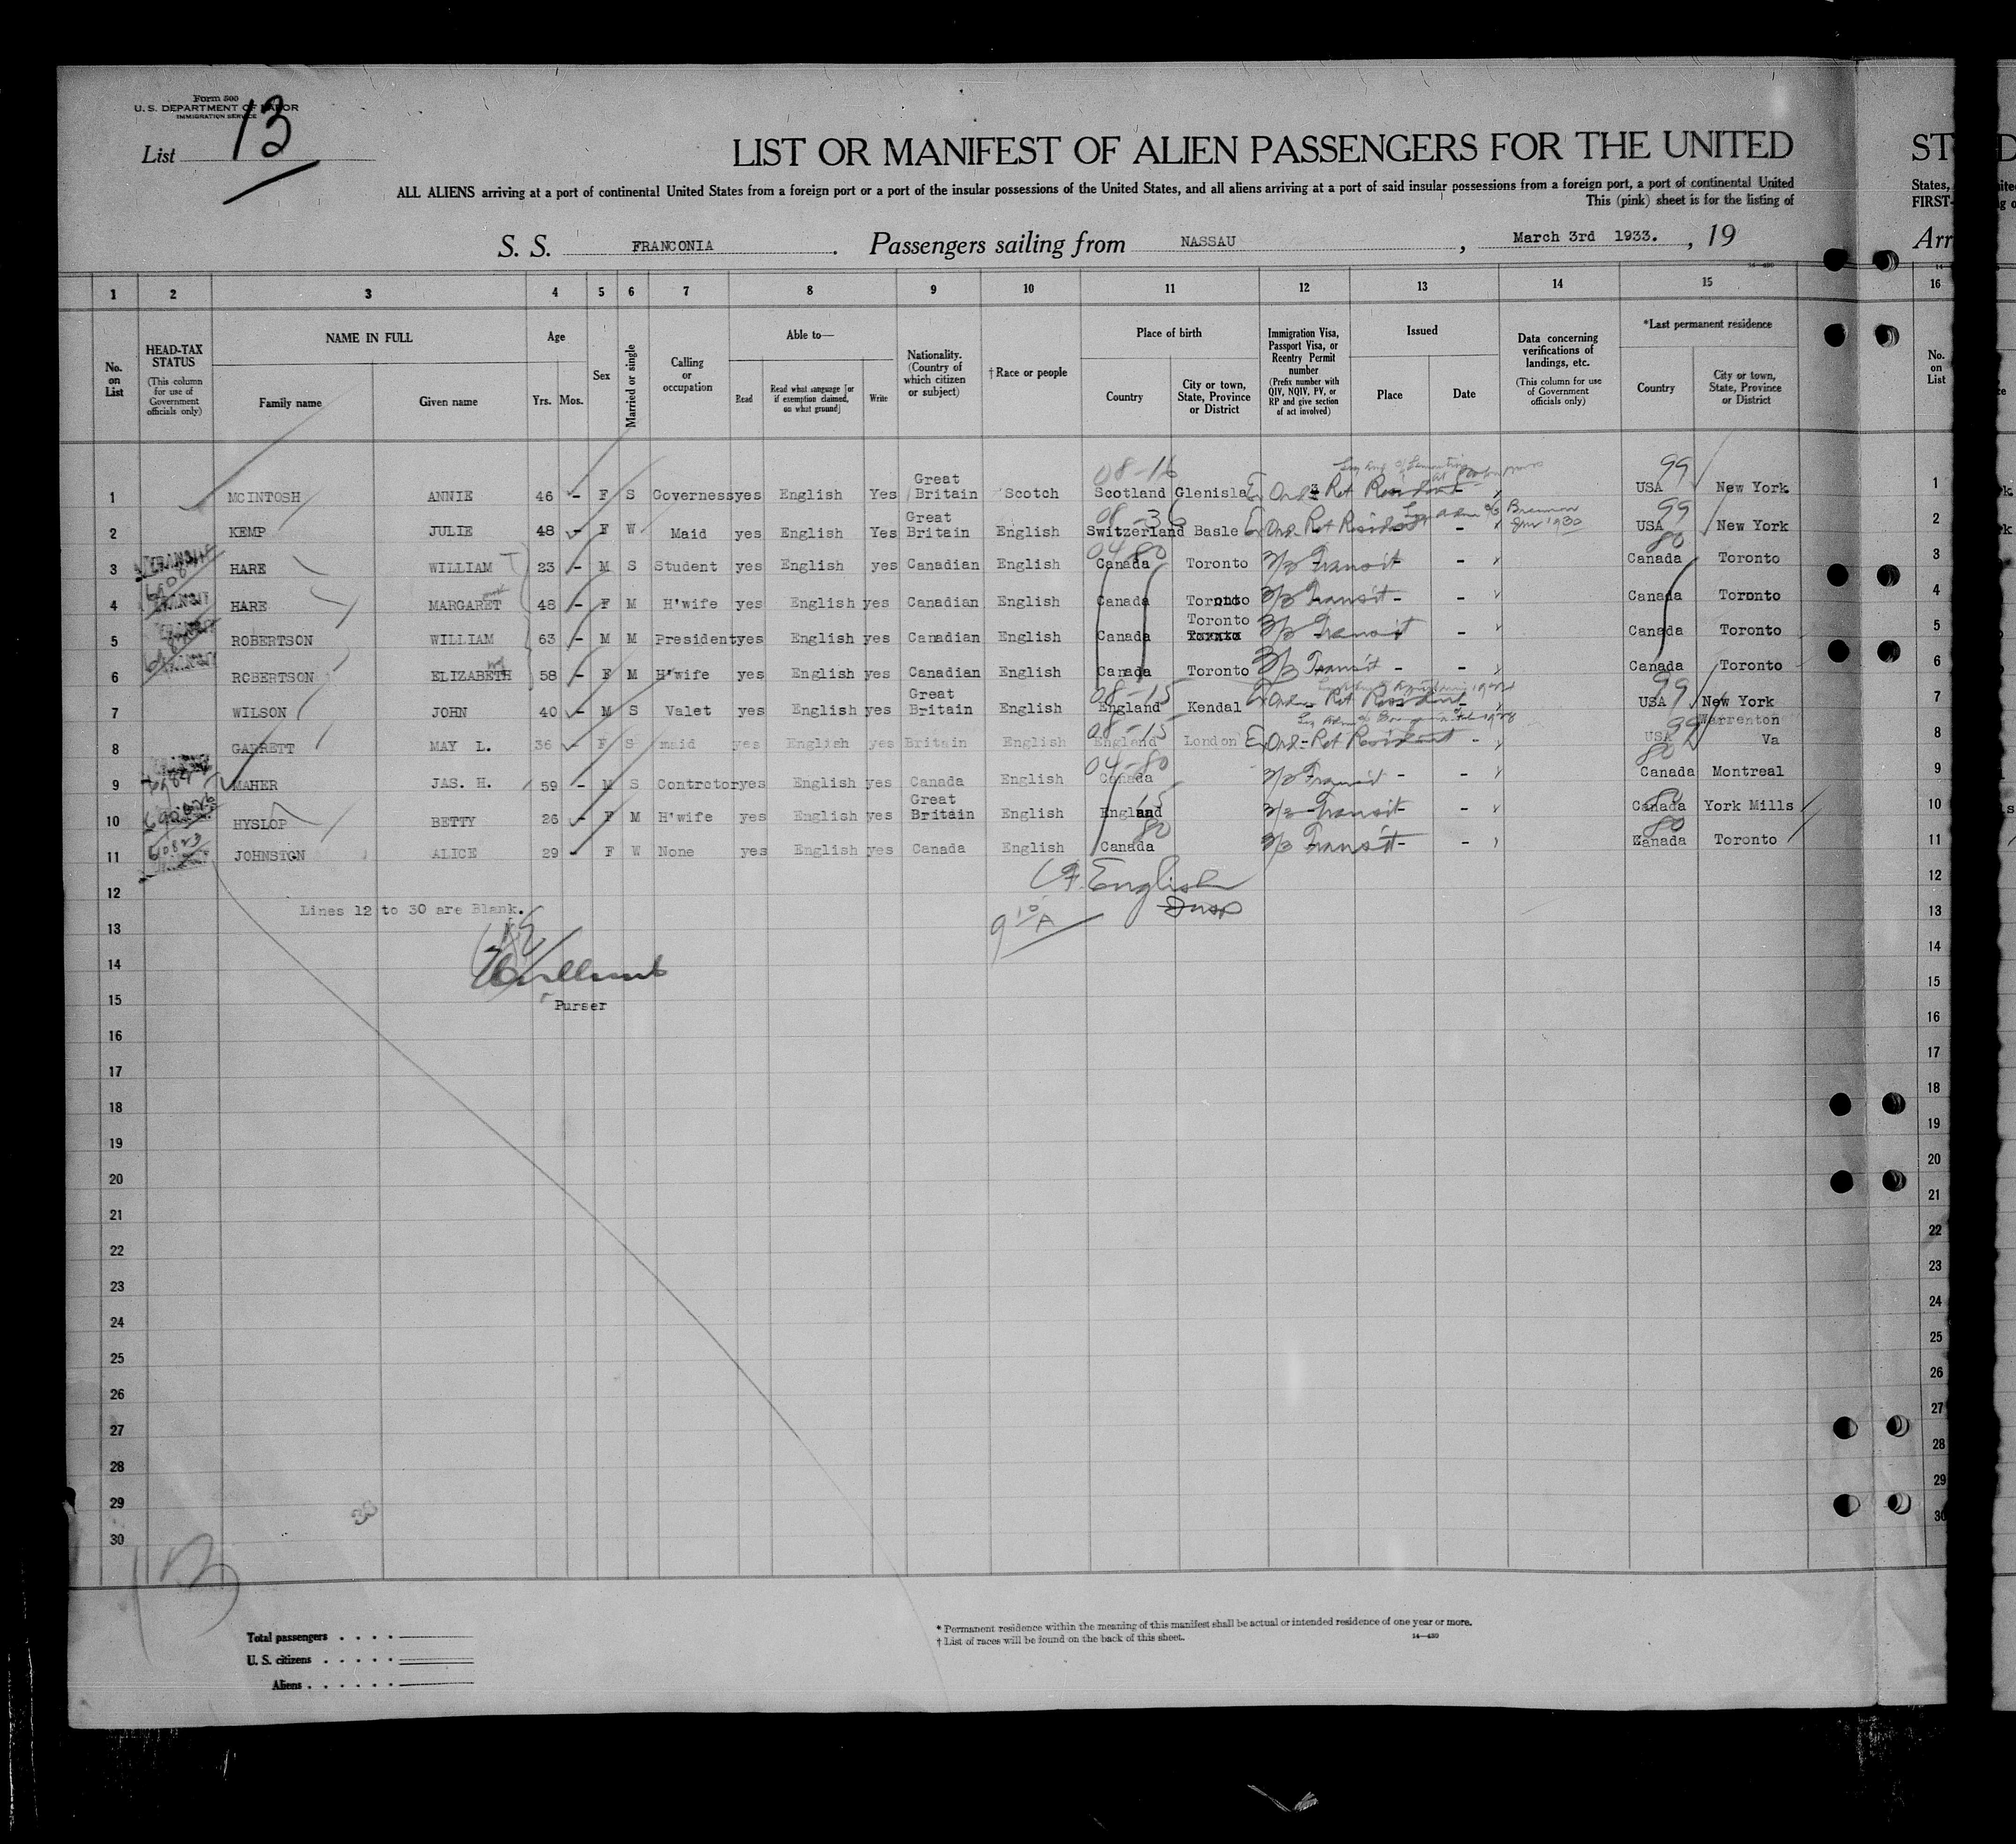 Form 500
U. S. DEPARTMENT OF LABOR
IMMIGRATION SERVICE
List 13
LIST OR MANIFEST OF ALIEN PASSENGERS FOR THE UNITED
ST
ALL ALIENS arriving at a port of continental United States from a foreign port or a port of the insular possessions of the United States, and all aliens arriving at a port of said insular possessions from a foreign port, a port of continental United
States,
This (pink) sheet is for the listing of
FIRST-
S. S. FRANCONIA. Passengers sailing from NASSAU, March 3rd 1933., 19
Arr
1 2 3 4 5 6 7 8 9 10 11 12 13 14 15 16
No. on List
HEAD-TAX STATUS (This column for use of Government officials only)
NAME IN FULL Family name Given name
Age Yrs. Mos.
Sex
Married or single
Calling or occupation
Able to— Read Read what language [or if exemption claimed, on what ground] Write
Nationality. (Country of which citizen or subject)
†Race or people
Place of birth Country City or town, State, Province or District
Immigration Visa, Passport Visa, or Reentry Permit number (Prefix number with QIV, NQIV, PV, or RP and give section of act involved)
Issued Place Date
Data concerning verifications of landings, etc. (This column for use of Government officials only)
*Last permanent residence Country City or town, State, Province or District
No. on List
1 MCINTOSH ANNIE 46 - F S Governess yes English Yes Great Britain Scotch 08-16 Scotland Glenisla Ret Resident - 99 USA New York 1
2 KEMP JULIE 48 - F W Maid yes English Yes Great Britain English 08-36 Switzerland Basle Ret Resident - 1930 99 USA New York 2
3 TRANSIT HARE WILLIAM 23 - M S Student yes English yes Canadian English 04-80 Canada Toronto 3/3 Transit - - 80 Canada Toronto 3
4 TRANSIT HARE MARGARET 48 - F M H'wife yes English yes Canadian English Canada Toronto 3/3 Transit - - Canada Toronto 4
5 TRANSIT ROBERTSON WILLIAM 63 - M M President yes English yes Canadian English Canada Toronto 3/3 Transit - Canada Toronto 5
6 TRANSIT ROBERTSON ELIZABETH 58 - F M H'wife yes English yes Canadian English Canada Toronto 3/3 Transit - - Canada Toronto 6
7 WILSON JOHN 40 - M S Valet yes English yes Great Britain English 08-15 England Kendal Ret Resident - 99 USA New York 7
8 GARRETT MAY L. 36 - F S maid yes English yes Britain English 08-15 England London Ret Resident - 99 USA Warrenton Va 8
9 MAHER JAS. H. 59 - M S Contrctor yes English yes Canada English 04-80 Canada 3/3 Transit - - 80 Canada Montreal 9
10 HYSLOP BETTY 26 - F M H'wife yes English yes Great Britain English 15 England 3/3 Transit - - 80 Canada York Mills 10
11 JOHNSTON ALICE 29 - F W None yes English yes Canada English 80 Canada 3/3 Transit - - 80 Canada Toronto 11
12 English 12
13 Lines 12 to 30 are Blank. Insp 13
9 10 A
14 14
15 Purser 15
16 16
17 17
18 18
19 19
20 20
21 21
22 22
23 23
24 24
25 25
26 26
27 27
28 28
29 29
30 30
13
Total passengers
U. S. citizens
Aliens
* Permanent residence within the meaning of this manifest shall be actual or intended residence of one year or more.
† List of races will be found on the back of this sheet.
14—430